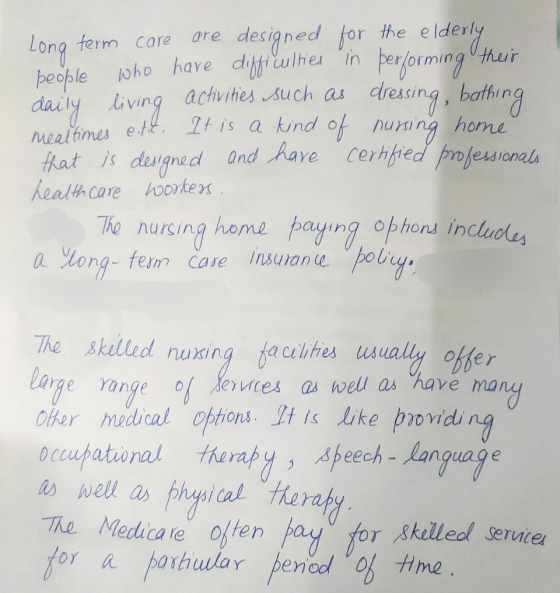 Long term care are designed for the elderly
people who have difficulties in performing their
daily living activities such as dressing, bathing
mealtimes etc. It is a kind of nursing home
that is designed and have certified professionals
healthcare workers.
The nursing home paying options includes
a long-term care insurance policy.
The skilled nursing facilities usually offer
large range of services as well as have many
other medical options. It is like providing
occupational therapy, speech-language
as well as physical therapy.
The Medicare often pay for skilled services
for a particular period of time.